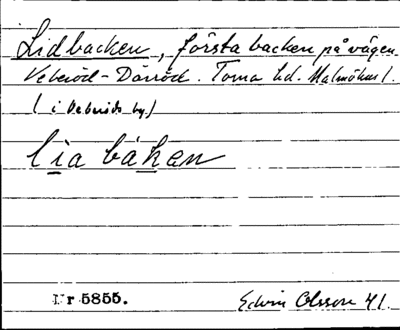 Lidbacken, första backen på vägen
Veberöd - Dörröd. Torna hd. Malmöhus l.
( i Veberöds by)
lia båken
Nr 5855.
Edvin Olsson 41.